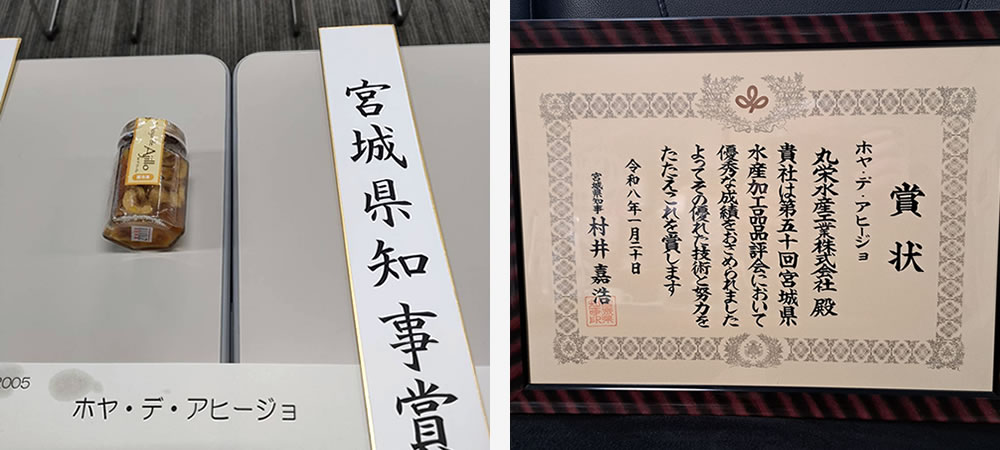 宮城県知事賞
Ajillo
2005
ホヤ・デ・アヒージョ
賞状
ホヤ・デ・アヒージョ
丸栄水産工業株式会社 殿
貴社は第五十回宮城県
水産加工品品評会において
優秀な成績をおさめられました
よってその優れた技術と努力を
たたえこれを賞します
令和八年一月二十日
宮城県知事 村井嘉浩